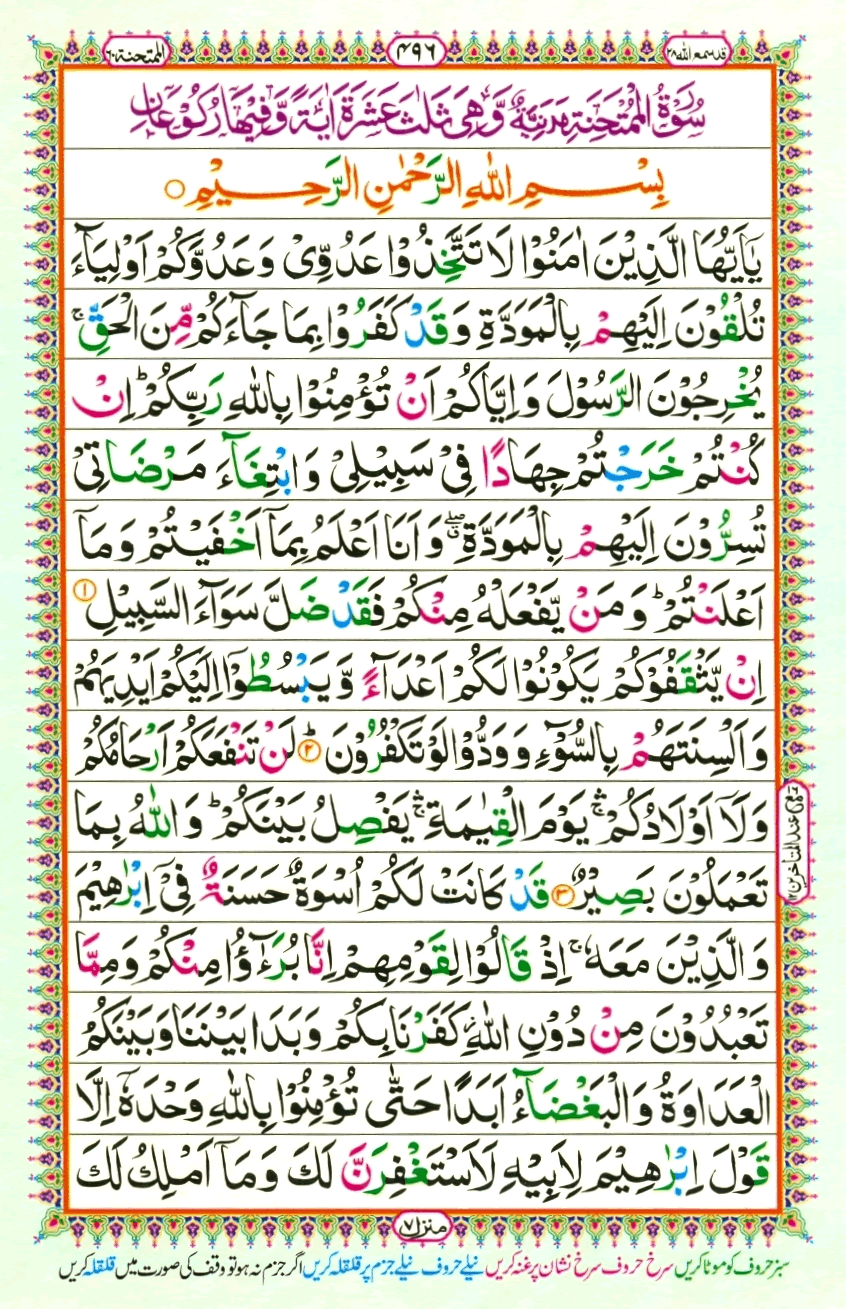 قد سمع الله ٢٨
٤٩٦
الممتحنة ٦٠
سُوْرَةُ الْمُمْتَحِنَةِ مَدَنِيَّةٌ وَّهِيَ ثَلٰثَ عَشَرَةَ اٰيَةً وَّفِيْهَا رُكُوْعَانِ
بِسْمِ اللهِ الرَّحْمٰنِ الرَّحِيْمِ ○
يٰۤاَيُّهَا الَّذِيْنَ اٰمَنُوْا لَا تَتَّخِذُوْا عَدُوِّيْ وَعَدُوَّكُمْ اَوْلِيَآءَ
تُلْقُوْنَ اِلَيْهِمْ بِالْمَوَدَّةِ وَقَدْ كَفَرُوْا بِمَا جَآءَكُمْ مِّنَ الْحَقِّ ۚ
يُخْرِجُوْنَ الرَّسُوْلَ وَاِيَّاكُمْ اَنْ تُؤْمِنُوْا بِاللهِ رَبِّكُمْ ؕ اِنْ
كُنْتُمْ خَرَجْتُمْ جِهَادًا فِيْ سَبِيْلِيْ وَابْتِغَآءَ مَرْضَاتِيْ
تُسِرُّوْنَ اِلَيْهِمْ بِالْمَوَدَّةِ ۖ وَاَنَا اَعْلَمُ بِمَاۤ اَخْفَيْتُمْ وَمَاۤ
اَعْلَنْتُمْ ؕ وَمَنْ يَّفْعَلْهُ مِنْكُمْ فَقَدْ ضَلَّ سَوَآءَ السَّبِيْلِ ۝۱
اِنْ يَّثْقَفُوْكُمْ يَكُوْنُوْا لَكُمْ اَعْدَآءً وَّيَبْسُطُوْۤا اِلَيْكُمْ اَيْدِيَهُمْ
وَاَلْسِنَتَهُمْ بِالسُّوْٓءِ وَوَدُّوْا لَوْ تَكْفُرُوْنَ ؕ ۝۲ لَنْ تَنْفَعَكُمْ اَرْحَامُكُمْ
وَلَاۤ اَوْلَادُكُمْ ۛۚ يَوْمَ الْقِيٰمَةِ ۛۚ يَفْصِلُ بَيْنَكُمْ ؕ وَاللهُ بِمَا
تَعْمَلُوْنَ بَصِيْرٌ ۝۳ قَدْ كَانَتْ لَكُمْ اُسْوَةٌ حَسَنَةٌ فِيْۤ اِبْرٰهِيْمَ
وَالَّذِيْنَ مَعَهٗ ۚ اِذْ قَالُوْا لِقَوْمِهِمْ اِنَّا بُرَءٰٓؤُا مِنْكُمْ وَمِمَّا
تَعْبُدُوْنَ مِنْ دُوْنِ اللهِ ؗ كَفَرْنَا بِكُمْ وَبَدَا بَيْنَنَا وَبَيْنَكُمُ
الْعَدَاوَةُ وَالْبَغْضَآءُ اَبَدًا حَتّٰى تُؤْمِنُوْا بِاللهِ وَحْدَهٗۤ اِلَّا
قَوْلَ اِبْرٰهِيْمَ لِاَبِيْهِ لَاَسْتَغْفِرَنَّ لَكَ وَمَاۤ اَمْلِكُ لَكَ
منزل ۷
سبز حروف کو موٹا کریں سرخ حروف سرخ نشان پر غنہ کریں نیلے حروف نیلے جزم پر قلقلہ کریں اگر جزم نہ ہو تو وقف کی صورت میں قلقلہ کریں